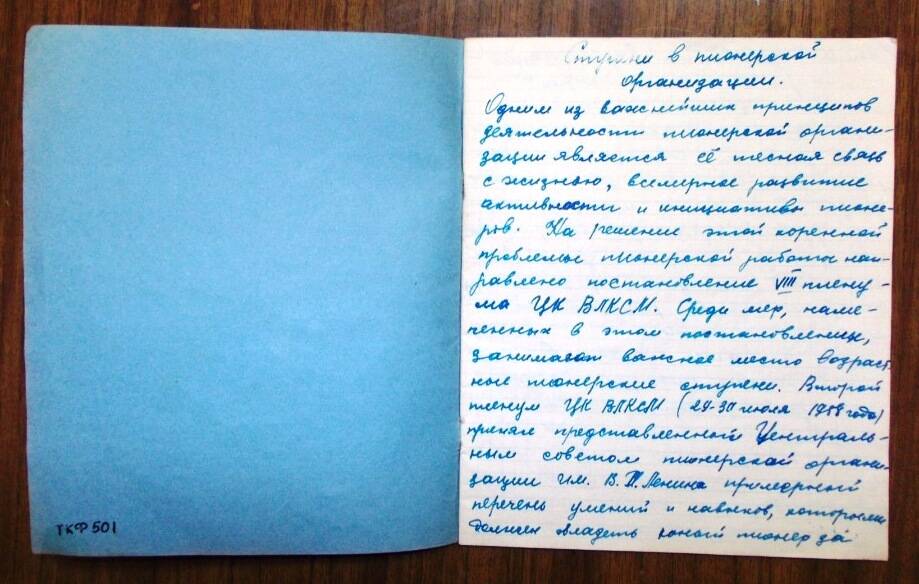 ТКФ 501
Ступени в пионерской
организации.
Одним из важнейших принципов
деятельности пионерской органи-
зации является её тесная связь
с жизнью, всемерное развитие
активности и инициативы пионе-
ров. На решение этой коренной
проблемы пионерской работы нап-
равлено постановление VIII плену-
ма ЦК ВЛКСМ. Среди мер, наме-
ченных в этом постановлении,
занимают важное место возраст
ные пионерские ступени. Второй
пленум ЦК ВЛКСМ (29-30 июля 1958 года)
принял представленный Централь-
ным советом пионерской органи-
зации им. В. И. Ленина примерный
перечень умений и навыков, которыми
должен владеть юный пионер за